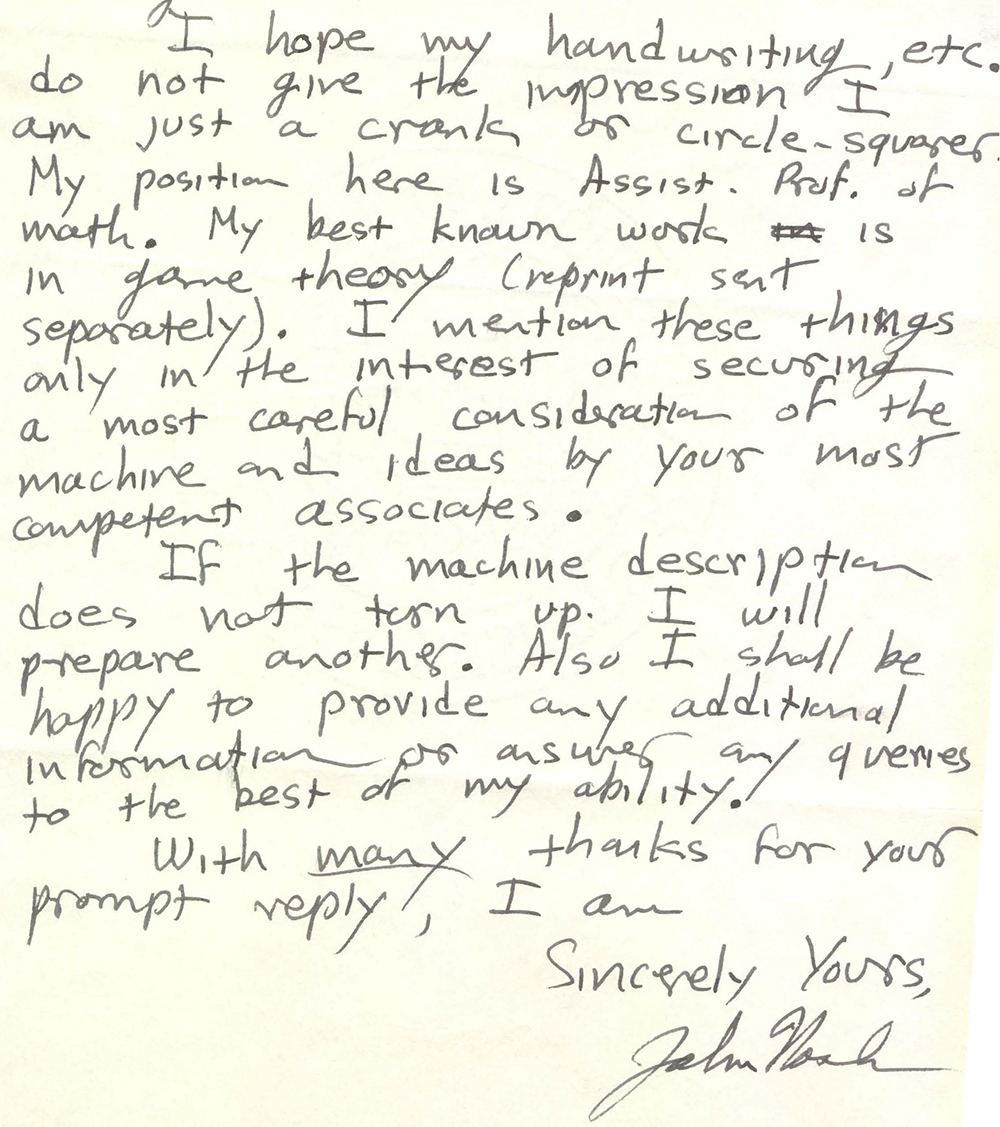 I hope my handwriting, etc.
do not give the impression I
am just a crank or circle-squarer.
My position here is Assist. Prof. of
math. My best known work is
in game theory (reprint sent
separately). I mention these things
only in the interest of securing
a most careful consideration of the
machine and ideas by your most
competent associates.
If the machine description
does not turn up. I will
prepare another. Also I shall be
happy to provide any additional
information or answer any queries
to the best of my ability.
With many thanks for your
prompt reply, I am
Sincerely Yours,
John Nash